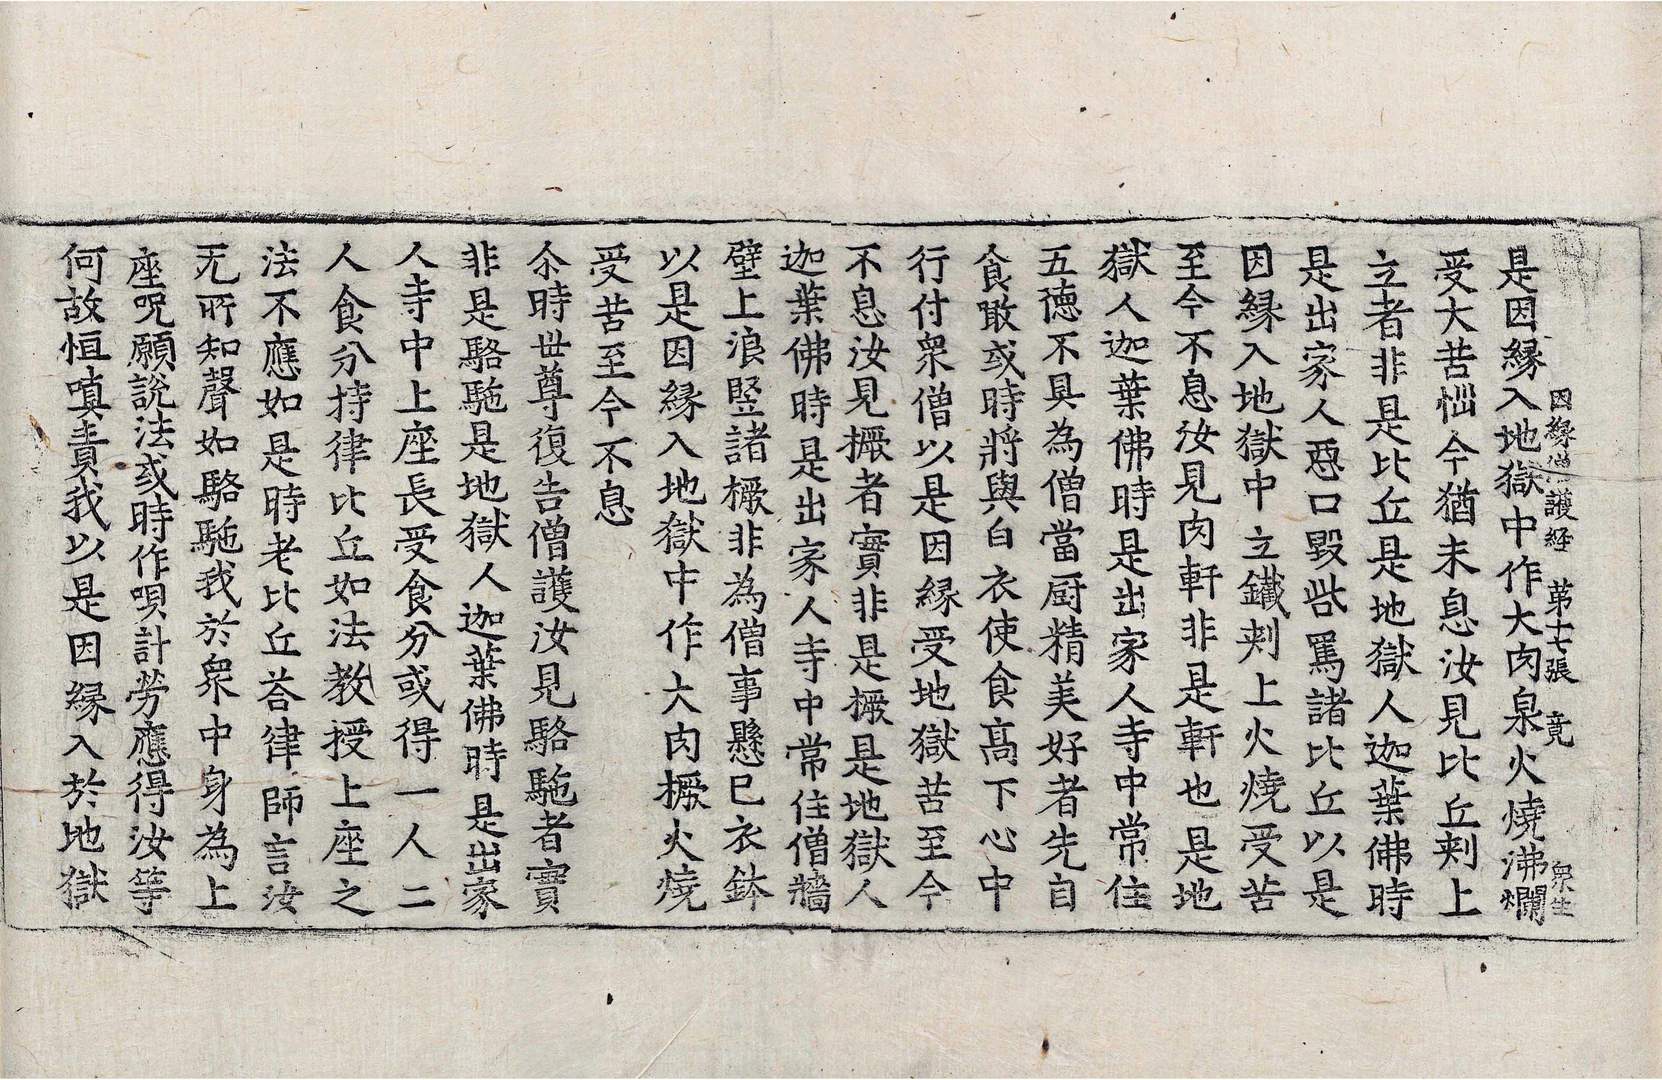 因緣僧護經 第十七張 竟 衆生
是因緣入地獄中作大肉泉火燒沸爛
受大苦惱今猶未息汝見比丘刾上
立者非是比丘是地獄人迦葉佛時
是出家人惡口毀呰罵諸比丘以是
因緣入地獄中立鐵刾上火燒受苦
至今不息汝見肉軒非是軒也是地
獄人迦葉佛時是出家人寺中常住
五德不具為僧當厨精美好者先自
食噉或時將與白衣使食髙下心中
行付衆僧以是因緣受地獄苦至今
不息汝見橛者實非是橛是地獄人
迦葉佛時是出家人寺中常住僧牆
壁上浪竪諸橛非為僧事懸已衣鉢
以是因緣入地獄中作大肉橛火燒
受苦至今不息
尒時世尊復告僧護汝見駱駞者實
非是駱駞是地獄人迦葉佛時是出家
人寺中上座長受食分或得一人二
人食分持律比丘如法教授上座之
法不應如是時老比丘荅律師言汝
无所知聲如駱駞我於衆中身為上
座呪願說法或時作唄計勞應得汝等
何故恒嗔責我以是因緣入於地獄